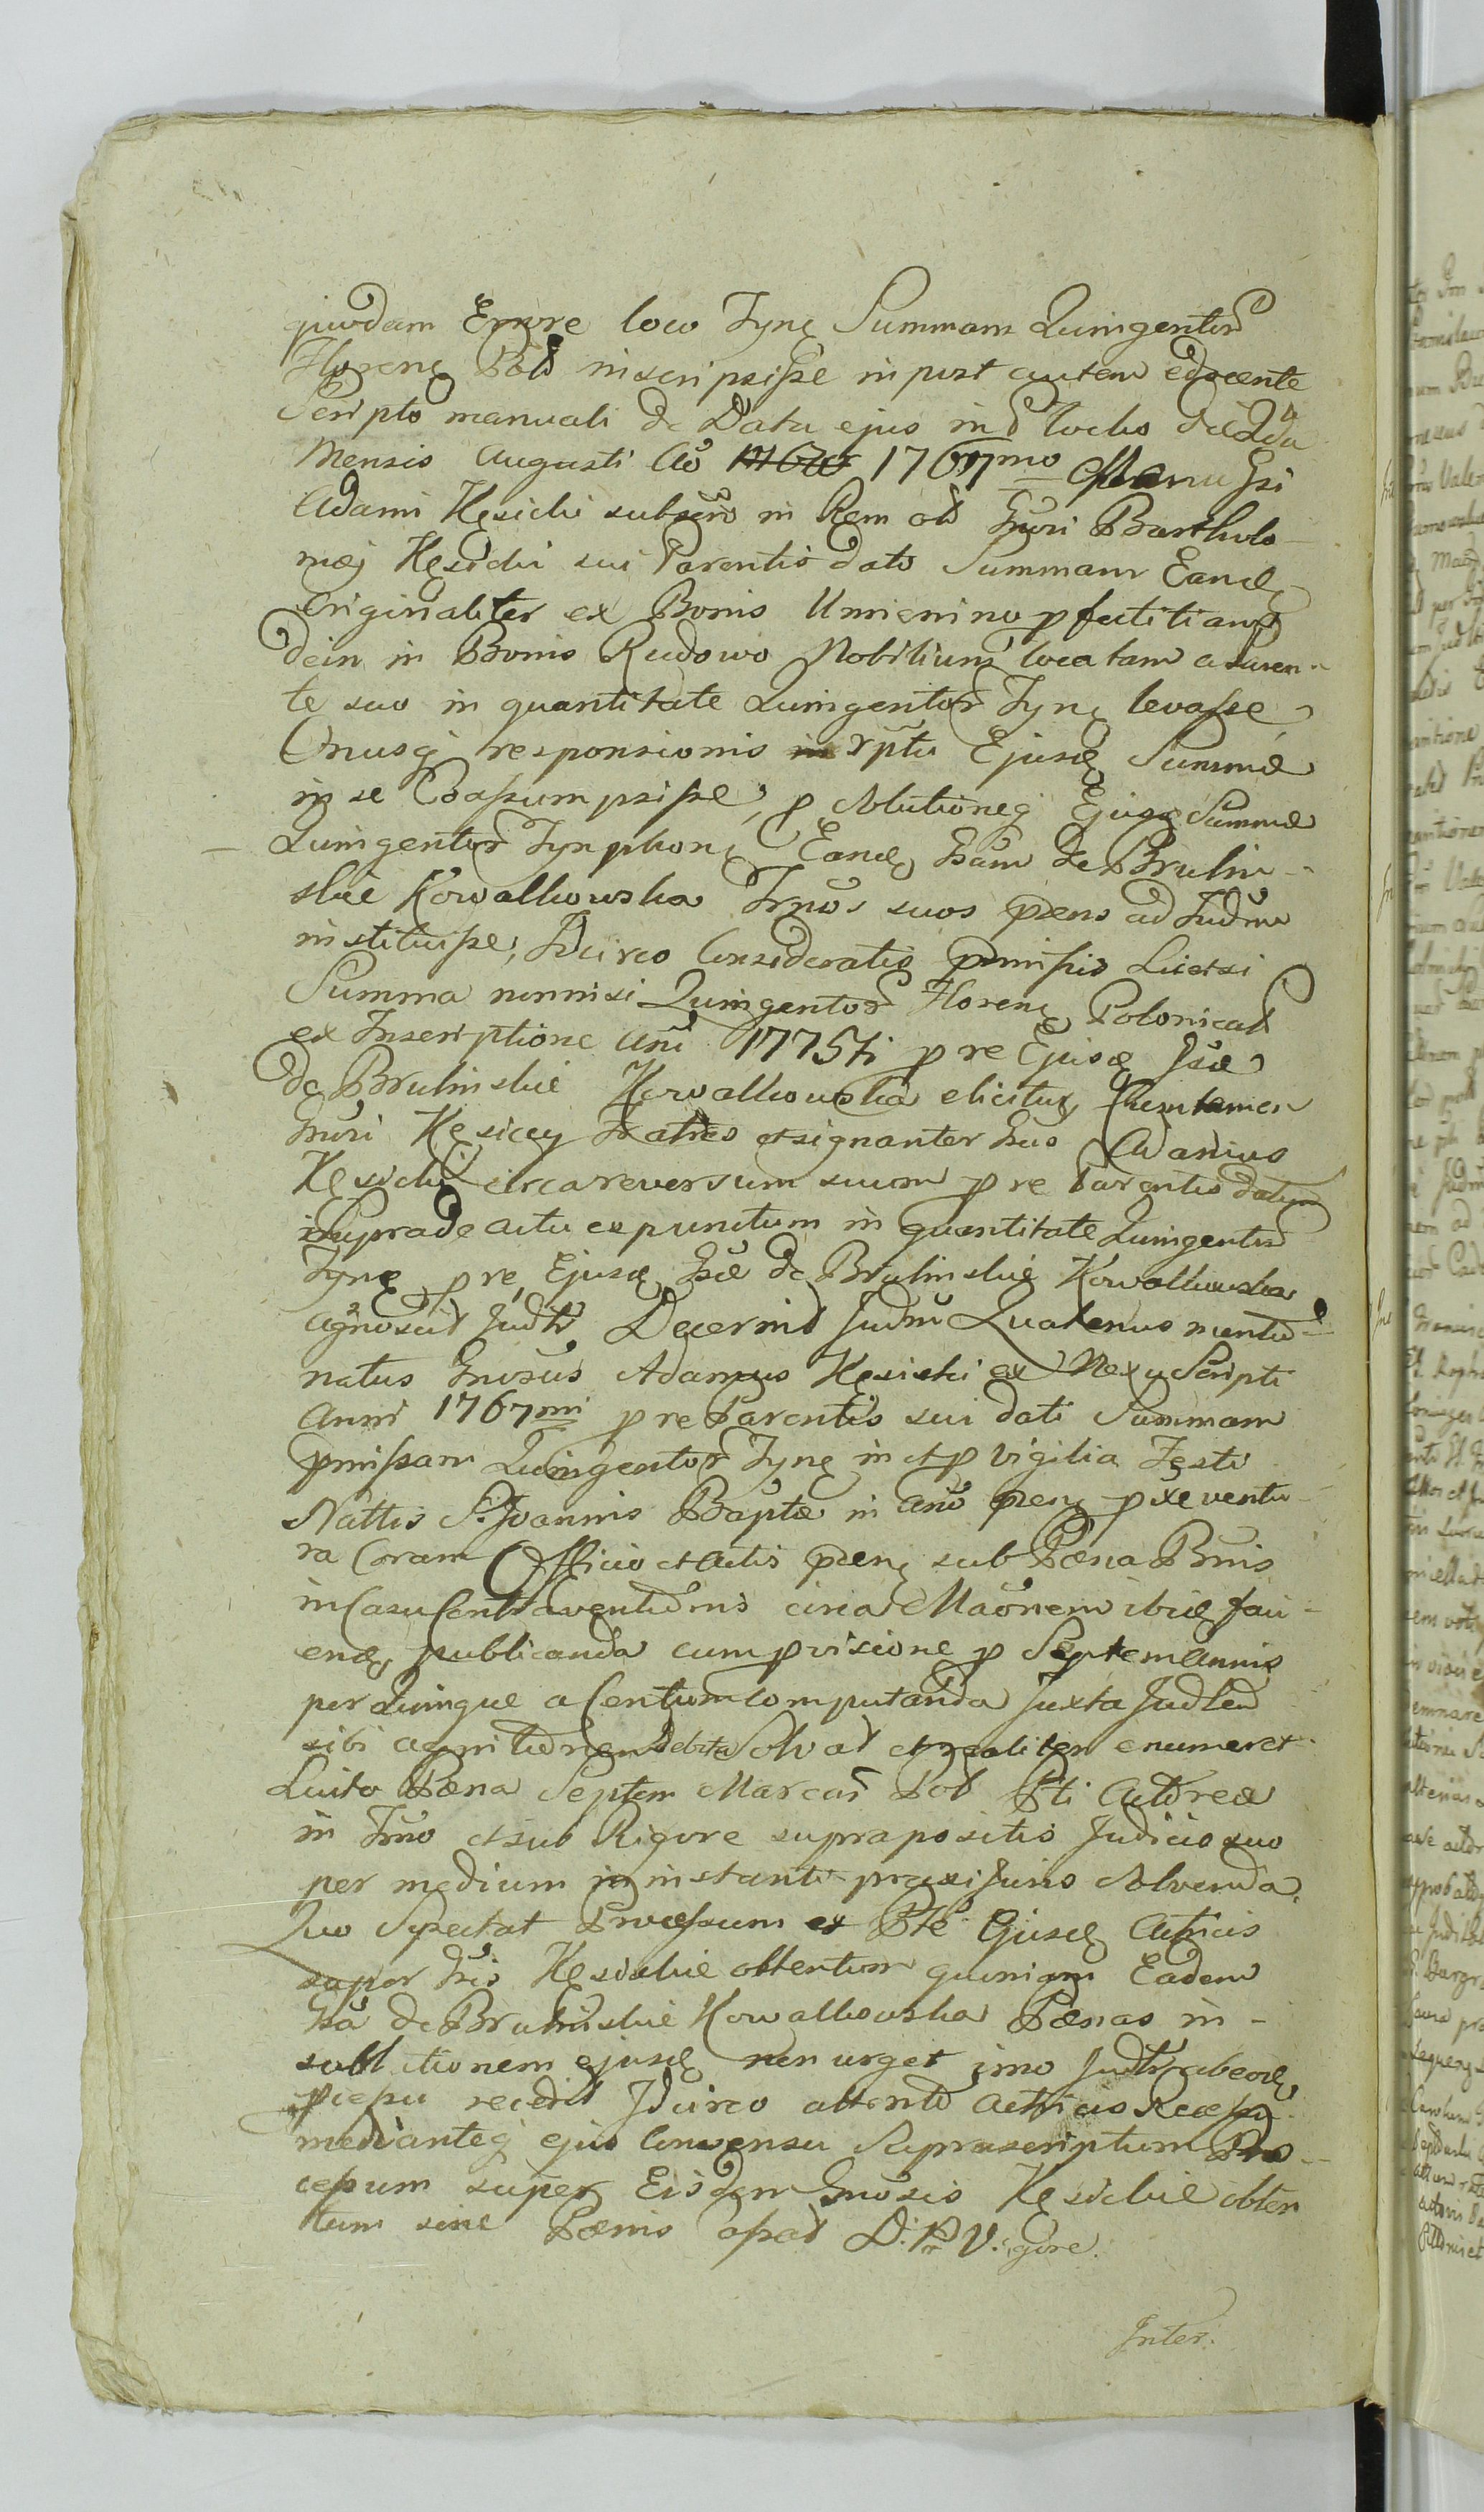 quodam Errore loco Tynę Summam Quingentor
Florenę Pol inscripsisse in post autem edocente
Scripto manuali de Data ejus in
Mensis Augusti Ao 1767mo Manu Gsi
Adami Kęsicki subscro in Rem olt Gnri Bartholo
mæj Kęsicki sui Parentis dato Summam Eandę
Originaliter ex Bonis Umienino pfectitiam
dein in Bonis Rudowo Nobilium locatam a Paren-
te suo in quantitate Quingentor Tynę levasse
Onusqj responsionis rptu Ejusdę Summæ
in se Coassumpsisse, p Solutioneqj Ejusdę Summæ
Quingentor Tynphonę Eandę Gsam de Brulin-
skie Kowalkowska Trnos suos præns ad Judm
instituisse, Idcirco Consideratis præmissis Licetsi
Summa nonnisi Quingentor Florenę Polonical
ex Inscriptione Ani 1775ti p re Ejusdę Gsæ
de Brulinskie Kowalkowska elicitur, Cumtamen
Gnri Kęsiccy Fratres et signanter Gsus Adamus
Kęsicki circa reversum suum p re Parentis datum
Supra de actu expunctum in quantitate Quingentor
Tynę p re Ejusdę Gsæ de Brulinskie Kowalkowska
agnoscit Judtr Decernit Judm Quatenus mentio
natus Gnrosus Adamus Kęsicki ex Nexu Scripti
Anni 1767mi p re Parentis sui dati Summam
pmissam Quingentor Tynę in et p vigilia Festi
Nattis S. Joannis Baptæ in Ano prænę pxe ventu
ra Coram Officio et Actis prænę sub Pæna Bnis
in Casu Contraventionis circa Maonem ibidę faci-
endę publicanda cum pvisione p Septem Annis
per Quinque a Centum Computanda Juxta Judtled
sibi agnitionem debita Solvat et realiter enumeret
Luito Pæna Septem Marcar Pol Pti Actoreæ
in Trno et sub Rigore supra positis Judicio suo
per medium in instanti præxi Junis Solvenda.
Quo Spectat Processum ex Pte Ejusdę Actricis
super Gsis Kęsickie obtentum quoniam Eadem
Gsa de Brulinskie Kowalkowska Pænas in -
solutionem ejusdę non urget imo Judtr ab eodę
pcessu recedit Idcirco attento Actricis Recessu
medianteqj ejus Consensu Suprascriptum Pro-
cessum super Eisdem Gnrosis Kęsickie obten
tum sine Pænis cassat D: Pr V: igore.
Inter.